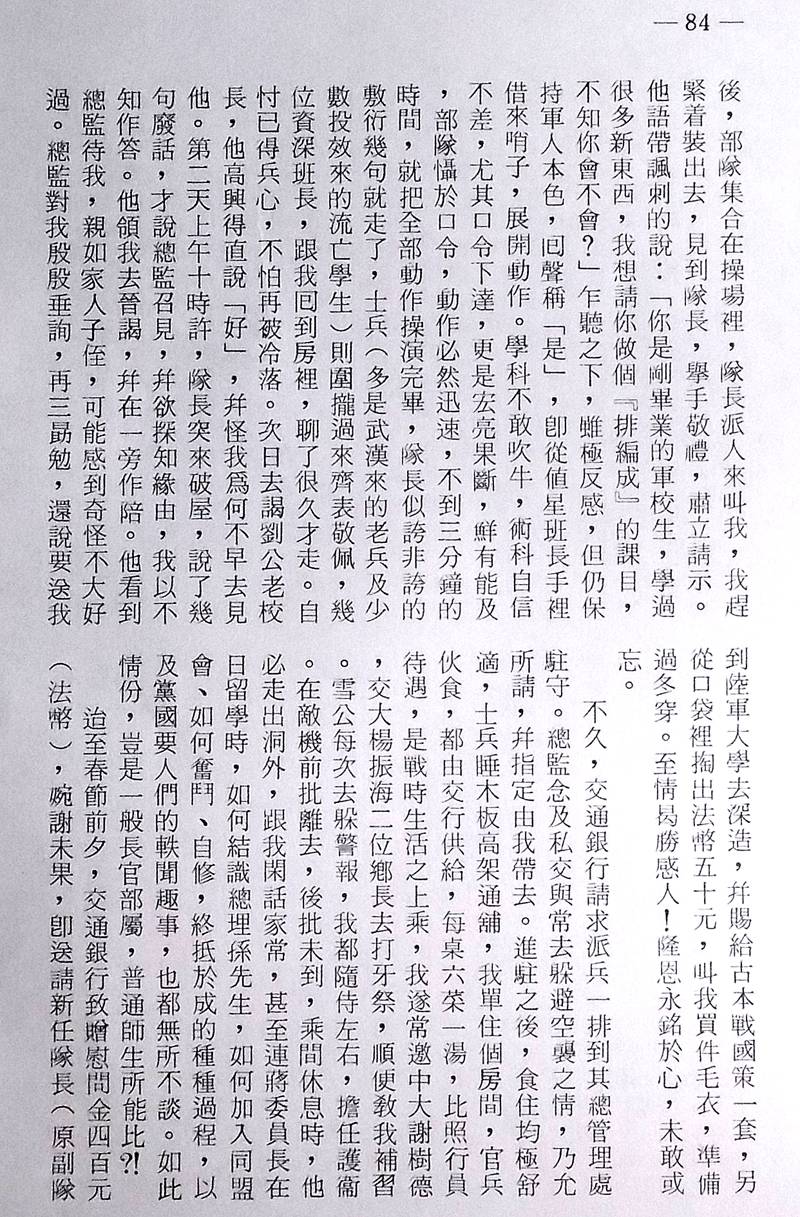 — 84 —
後，部隊集合在操場裡，隊長派人來叫我，我趕
緊着裝出去，見到隊長，舉手敬禮，肅立請示。
他語帶諷刺的說：「你是剛畢業的軍校生，學過
很多新東西，我想請你做個『排編成』的課目，
不知你會不會？」乍聽之下，雖極反感，但仍保
持軍人本色，回聲稱「是」，卽從值星班長手裡
借來哨子，展開動作。學科不敢吹牛，術科自信
不差，尤其口令下達，更是宏亮果斷，鮮有能及
，部隊懾於口令，動作必然迅速，不到三分鐘的
時間，就把全部動作操演完畢，隊長似誇非誇的
敷衍幾句就走了，士兵（多是武漢來的老兵及少
數投效來的流亡學生）則圍攏過來齊表敬佩，幾
位資深班長，跟我回到房裡，聊了很久才走。自
忖已得兵心，不怕再被冷落。次日去謁劉公老校
長，他高興得直說「好」，幷怪我爲何不早去見
他。第二天上午十時許，隊長突來破屋，說了幾
句廢話，才說總監召見，幷欲探知緣由，我以不
知作答。他領我去晉謁，幷在一旁作陪。他看到
總監待我，親如家人子侄，可能感到奇怪不大好
過。總監對我殷殷垂詢，再三勗勉，還說要送我
到陸軍大學去深造，幷賜給古本戰國策一套，另
從口袋裡掏出法幣五十元，叫我買件毛衣，準備
過冬穿。至情曷勝感人！隆恩永銘於心，未敢或
忘。
不久，交通銀行請求派兵一排到其總管理處
駐守。總監念及私交與常去躲避空襲之情，乃允
所請，幷指定由我帶去。進駐之後，食住均極舒
適，士兵睡木板高架通舖，我單住個房間，官兵
伙食，都由交行供給，每桌六菜一湯，比照行員
待遇，是戰時生活之上乘，我遂常邀中大謝樹德
，交大楊振海二位鄉長去打牙祭，順便敎我補習
。雪公每次去躲警報，我都隨侍左右，擔任護衞
。在敵機前批離去，後批未到，乘間休息時，他
必走出洞外，跟我閑話家常，甚至連蔣委員長在
日留學時，如何結識總理孫先生，如何加入同盟
會、如何奮鬥、自修，終抵於成的種種過程，以
及黨國要人們的軼聞趣事，也都無所不談。如此
情份，豈是一般長官部屬，普通師生所能比？！
迨至春節前夕，交通銀行致贈慰問金四百元
（法幣），婉謝未果，卽送請新任隊長（原副隊